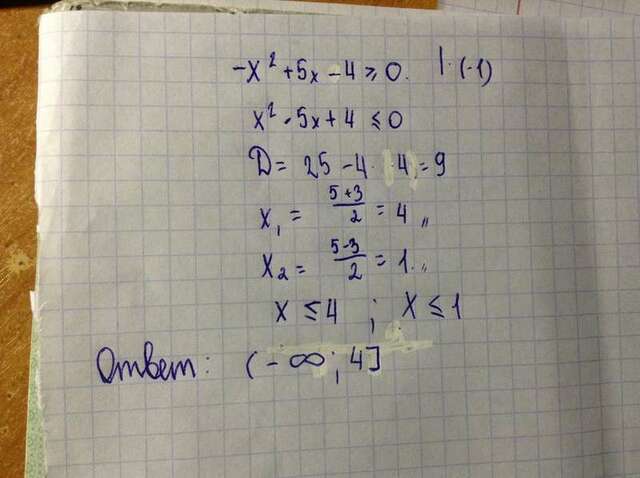 -x² + 5x - 4 ≥ 0. | · (-1)
x² - 5x + 4 ≤ 0
D = 25 - 4 · 4 = 9
x₁ = (5+3)/2 = 4 „
x₂ = (5-3)/2 = 1. „
x ≤ 4 ; x ≤ 1
Ответ: (-∞; 4]